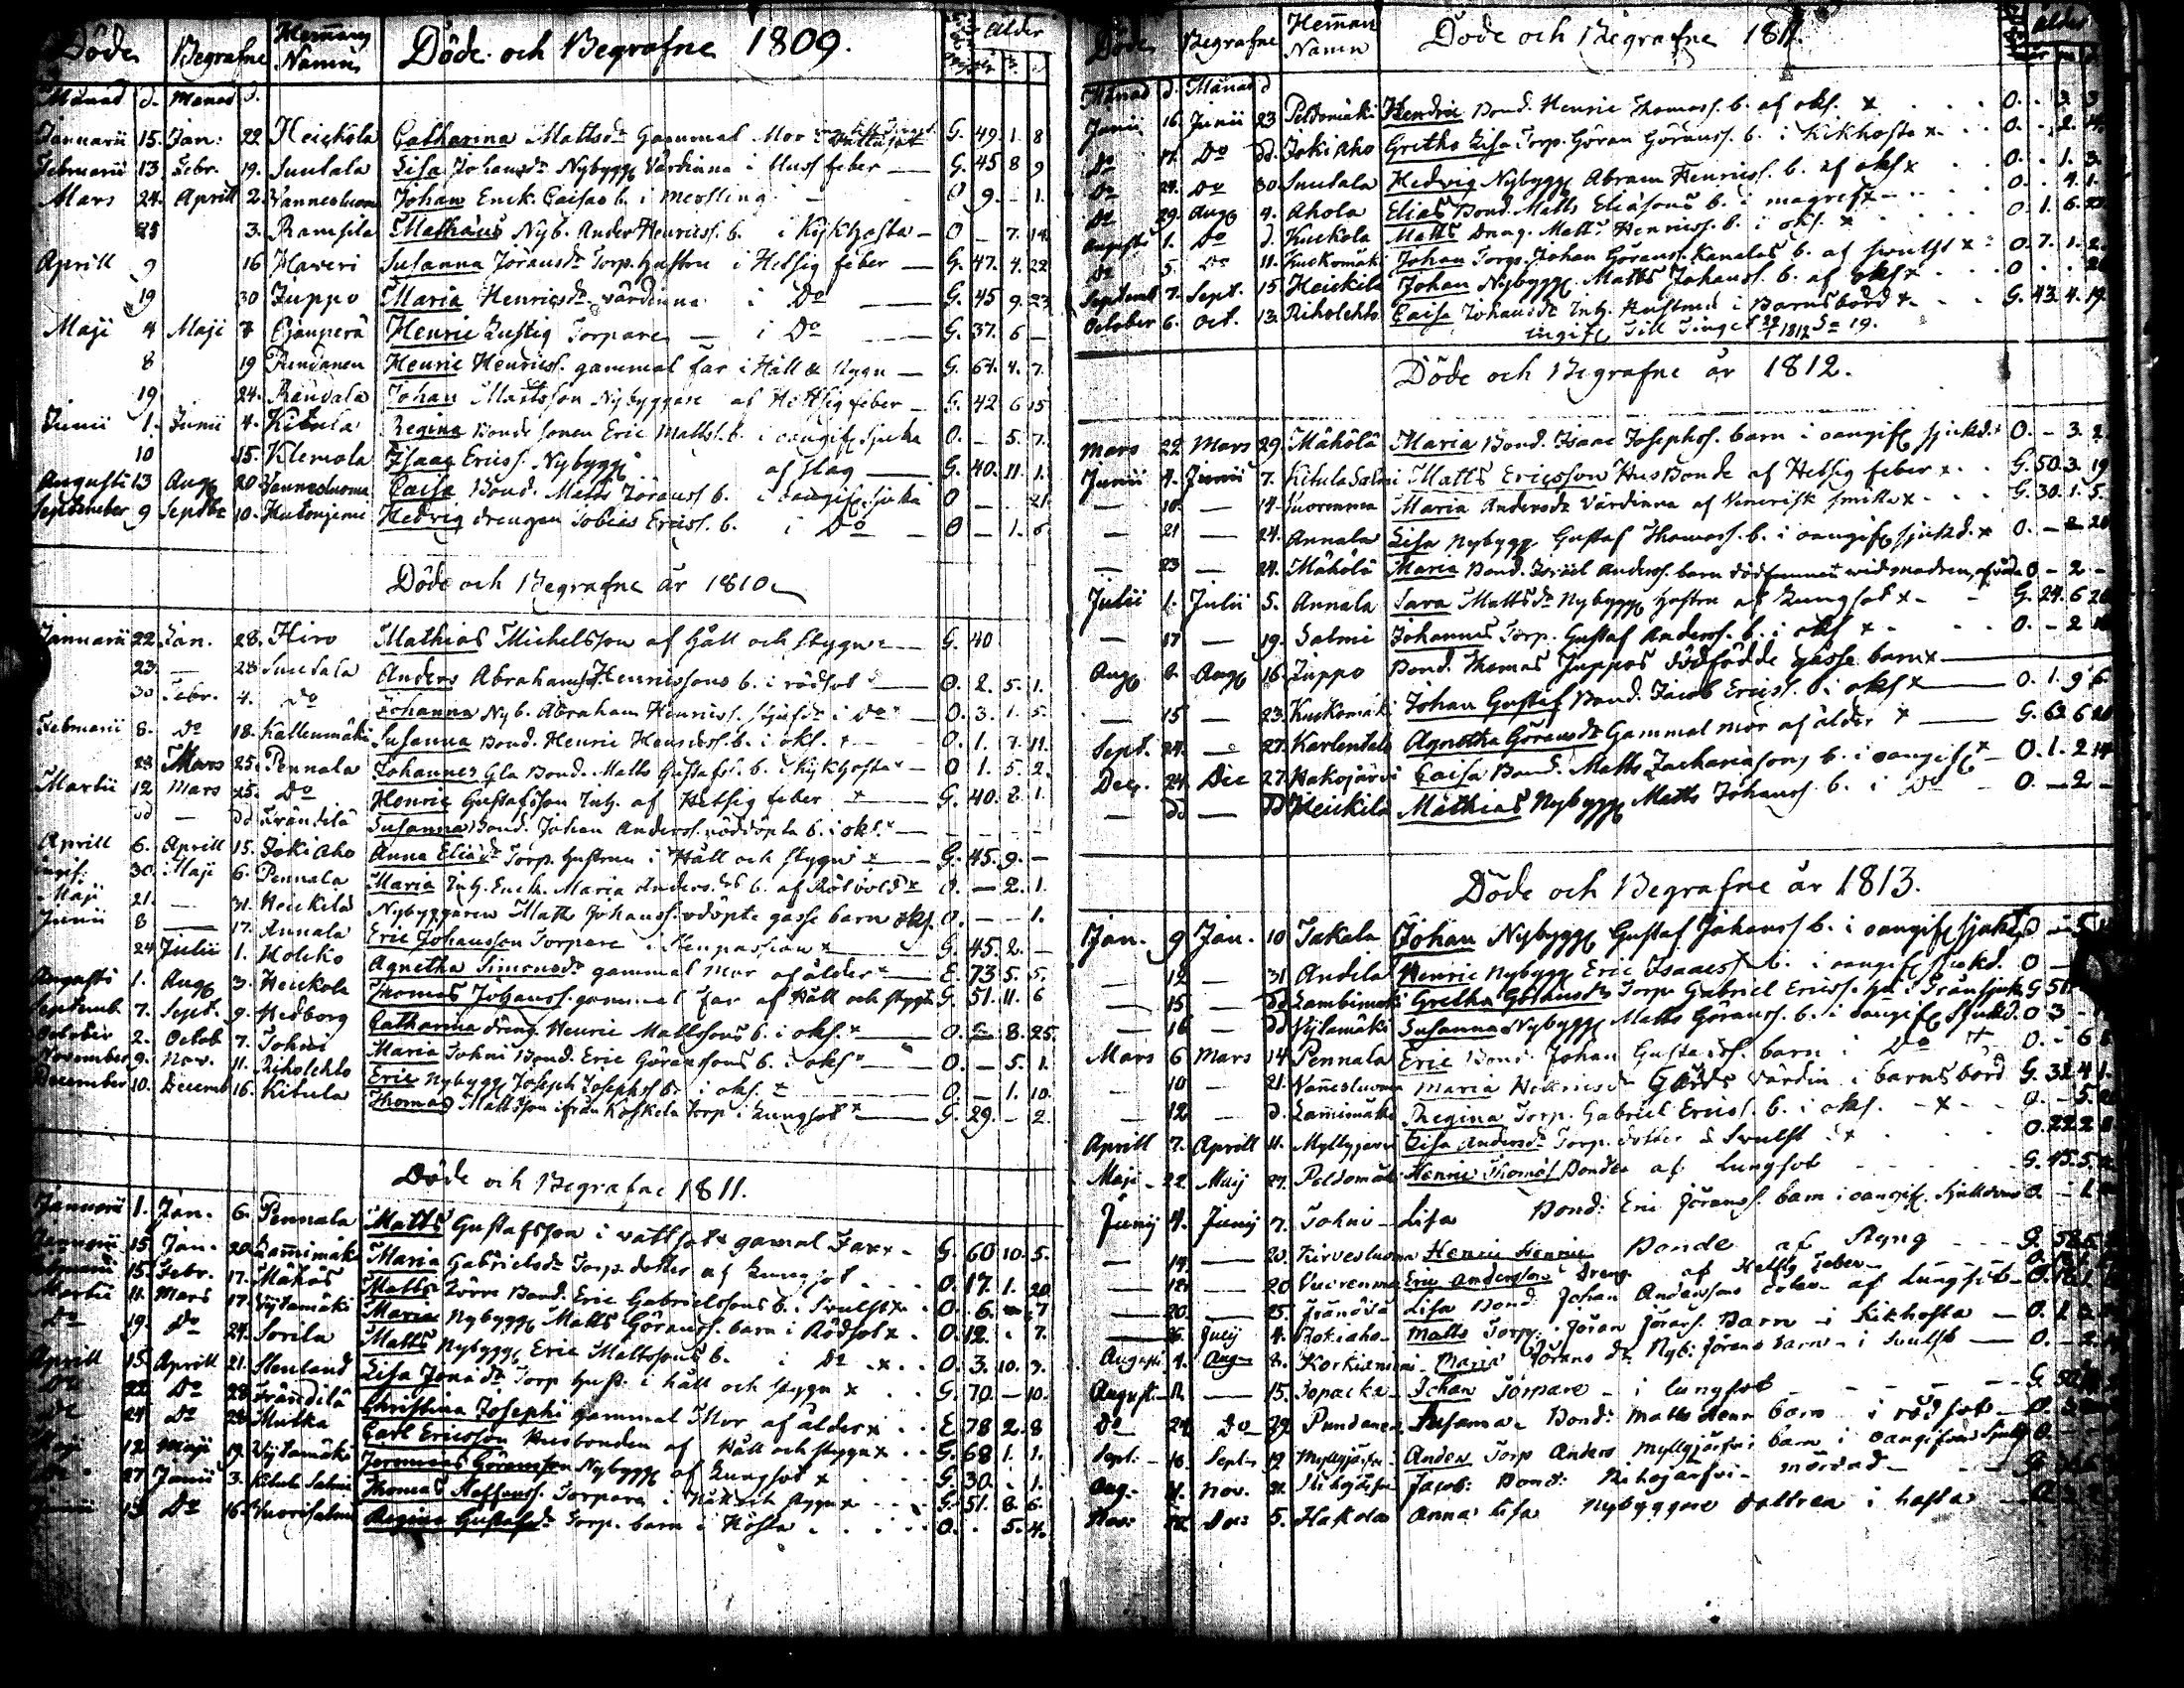 Döde Begrafne Hemans Namn Döde och Begrafne 1809. Ålder
Månad d. Manad d.
Januarii 15. Jan: 22 Heickola Catharina Mattsdr Gammal Mor G. 49. 1. 8
Februarii 13 Febr. 19. Suutala Lisa Johansdr Nybygg Värdinna i Huss feber G. 45 8 9
Mars 24. Aprill 2. Vannesluoma Johan Enck. Caisas b. i messling O 9. - 1.
25 3. Ramsila Mathäus Nyb. Ander Henricss. b. i Kykhosta O - 7. 14
Aprill 9 16 Haveri Susanna Jöransdr Torp. hustru i Hetsig feber G. 47. 4. 22
19 30 Juppo Maria Henricsdr värdinna i Do G. 45 9. 23
Maji 4 Maji 7 Henric Lustig Torpare i Do G. 37. 6 -
8 19 Pundanen Henric Henricss. gammal far i Håll & stygn G. 64. 4. 7.
19 24. Randala Johan Mattsson Nybyggare af Hettsig feber G. 42 6 15
Junii 1. Junii 4. Kitula Regina Bonde sonen Eric Mattss. b. i oangif sjuka O. - 5. 7.
10 15. Klemola Isaac Ericss. Nybygg af slag G. 40. 11. 1.
Augusti 13 Aug 20 Vannesluoma Caisa Bond. Matts Jöranss b. i oangif. sjuka O - - 21
September 9 Septbr 10. Hedvig drengen Tobias Ericss. b. i Do O - 1. 6
Döde och Begrafne år 1810
Januarii 22 Jan. 28. Hiro Mathias Michelsson af håll och stygn G. 40
23. — 28 Suutala Anders Abraham Henricssons b. i rödsot O. 2. 5. 1.
30 Febr. 4. Do Johanna Nyb. Abraham Henricss. i Do O. 3. 1. 5.
Februarii 8. Do 18. Kallenmäki Susanna Bond. Henric Henricss. b. i oks. O. 1. 7. 11.
28 Mars 25. Pennala Johannes Gla Bond. Matts Gustafs. b. i Kykhosta O 1. 5. 2.
Martii 12 Mars 25. Do Henric Gustafsson Inh. af Hetsig feber G. 40. 2. 1.
dd — dd Frändilä Susanna Bond. Johan Anderss. nöddöpta b. i oks.
Aprill 6. Aprill 15. Jokiaho Anna Eliædr Torp. hustru i Håll och stygn G. 45. 9. -
30 Maji 6. Pennala Maria Inh. Enck. Maria Anders. b. af O. - 2. 1.
Maji 21. — 31. Heickilä Nybyggaren Matts Johanss. odöpte gosse barn oks. O. - - 1.
Junii 8 — 17. Annala Eric Johansson Torpare i G. 45. 2. -
24 Julii 1. Holcko Agnetha Simonsdr gammal mor af ålder E. 73 5. 5.
Augusti 1. Aug 3. Heickola Thomas Johanss. gammal far af Håll och stygn G. 51. 11. 6
Septemb. 7. Sept. 9. Hedborg Catharina dräng. Henric Mattssons b. i oks. O. - 8. 25.
October 2. Octob 7. Tohni Maria Tohni Bond. Eric Göranssons b. i oks O. - 5. 1.
November 9. Nov. 11. Riholehto Eric Nybygg Joseph Josephss b. i oks. O - 1. 10.
December 10. Decemb 16. Kitula Thomas Mattsson ifrån Koskela Torp i Lungsot G. 29. - 2.
Döde och Begrafne 1811.
Januarii 1. Jan. 6. Pennala Matts Gustafsson i vattsot gamal Far G. 60 10. 5.
Januarii 15. Jan. 20. Lammimäki Maria Gabrielsdr Torp. dotter af Lungsot O. 17. 1. 20
15. Febr. 17. Mähös Matts Törre Bond. Eric Gabrielssons b. i Svullst O. 6. - 7
Martii 11. Mars 17. Vytamäki Maria Nybygg Matts Göranss. barn i Rödsot O. 12. . 7.
Do 19. Do 24. Sorila Matts Nybygg Eric Mattssons b. i Do O. 3. 10. 3.
Aprill 15. Aprill 21. Stenland Lisa Jonædr Torp hust. i håll och stygn G. 70. - 10.
Do 22 Do 28 Frändilä Christina Josephi gammal Mor af ålder E 78 2. 8
Do 24 Do 28 Mutka Carl Ericsson Husbonden af Håll och stygn G. 68 1. 1.
Maji 12 Maji 19. Vytamäki Jeremias Göransson Nybygg af Lungsot G. 30. . 1.
27 Junii 3. Thomas Staffanss. Torpare i Håll och stygn G. 51. 8. 6.
Junii 13 Do 16. Vuorisalmi Regina Gustafsdr Torp. barn i Hosta O. . 5. 4.
Döde Begrafne Heman Namn Döde och Begrafne 1811. ålder
Månad d. Månad d
Junii 16. Junii 23 Peldomäki Hendric Bond. Henric Thomass. b. af oks. O. . 3. 3
Do 17. Do dd. Jokiaho Gretha Lisa Torp. Göran Göranss. b. i Kikhosta O. . 2. 14.
Do 24. Do 30 Suutala Hedvig Nybygg Abram Henricss. b. af oks O. . 1. 3.
Do 29. Aug 4. Ahola Elias Bond. Matts Eliæsons b. i magref O. . 4. 1.
Augusti 1. Do d. Kuckola Matts Dräng. Matts Henricss. b. i oks. O. 1. 6. 23
Do 5. Do 11. Kuckomäki Johan Torp. Johan Göranss. Kanalas b. af svulst O. 7. 1. 2.
Septemb 7. Sept. 15. Heickilä Johan Nybygg. Matts Johanss. b. af oks O . . 21
October 6. Oct. 13. Riholehto Caisa Johansdr Inh. Hustru i Barnsbörd G. 43. 4. 19.
ingift Till Tinget 1812 19.
Döde och Begrafne år 1812.
Mars 22 Mars 29. Mähölä Maria Bond. Isaac Josephs. barn i oangif sjukd. O. - 3. 2.
Junii 4. Junii 7. Kitula Salmi Matts Ericsson HusBonde af Hetsig feber G. 50. 3. 19
— 10. — 14. Vuorenma Maria Andersdr Värdinna af Venerisk smitta G. 30. 1. 5.
— 21 — 24. Annala Lisa Nybygg Gustaf Thomass. b. i oangif sjukd. O. - 2 20
— 23 — 24. Mähölä Maria Bond. Israel Anderss. barn dödfunnet wid modren, O - 2 -
Julii 1. Julii 5. Annala Sara Mattsdr Nybygg hustru af Lungsot G. 24. 6 26
— 17 — 19. Salmi Johannes Torp. Gustaf Anderss. b. i oks O. - 2
Aug 9. Aug 16. Juppo Bond. Thomas Juppos dödfödde gosse barn
— 15 — 23. Kuckomäki Johan Gustaf Bond. Jacob Ericss. b i oks O. 1. 9 6
Sept. 24. — 27. Agnetha Göransdr Gammal mor af ålder G. 63 6 20
Dec. 24 Dec 27. Hakojärvi Caisa Bond. Matts Zachariæsons b. i oangif O. 1. 2 14
— dd — dd Heickilä Mathias Nybygg Matts Johanss. b. i Do O. - 2 -
Döde och Begrafne år 1813.
Jan. 9 Jan. 10 Takala Johan Nybygg Gustaf Johanss b. i oangif sjukd O - 5
— 12 — 31 Andila Henric Nybygg Eric Isaacss b. i oangif sjukd. O
— 15 — dd Lambimäki Gretha Göransdr Torp. Gabriel Ericss. G 51
— 16 — dd Vytamäki Susanna Nybygg Matts Göranss. b. i oangif sjukd. O 3
Mars 6 Mars 14 Pennala Eric Bond. Johan Gustafss. barn i Do O. - 6
— 10 — 21. Vannesluoma Maria Henricsdr Gårds Värdin i barnsbörd G. 32 4 1.
— 12 — d. Lammimäki Regina Torp. Gabriel Ericss. b. i oks. O. - 5.
Aprill 7. Aprill 11. Myllyjerve Lisa Andersdr Torp. dotter i Svullst O. 22 2
Maji 22. Maij 27. Peldomäki Henric Thomas Bonden af Lungsot G. 45. 5.
Junij 4. Junij 7. Tohni Lisa Bond: Eric Jöranss. barn i oangif. sjukdom O - 1
— 14. — 20. Kirvesluoma Henric Henric Bonde af Styng G. 58
— 12 — 20 Vuorenma Eric Andersson Dreng. af Hetsig feber
— 20. — 25. Frändilä Lisa Bond Johan Anderssons doter af Lungsot
— 26. Julij 4. Jokiaho Matts Torp. Jöran Jörans. Barn i Kikhosta O. 1
Augusti 4. Aug 8. Korkianiemi Maria Jörans dr Nyb: Jörans barn i Svullst O. - 2
August. — 15. Topacka Johan Torpare i lungsot G. 50
Do 24 Do 29. Pundanen Susanna Bond: Matts Henr barn i rödsot
Sept: 10. Sept. 12 Myllyjärvi Anders Torp Anders Myllyjärfvi barn i oangifven
Aug. Nov. 21. Jacob: Bond: mördad
Nov: Dec: 5. Hakola Anna Lisa Nybyggare dottren i hosta